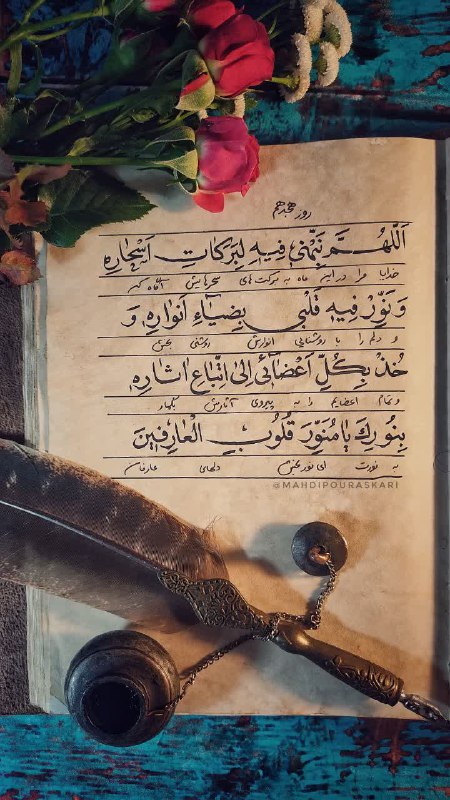 روز هجدهم
اَللّهُمَّ نَبِّهْنی فیهِ لِبَرَکاتِ اَسْحارِهِ
خدایا مرا در این ماه به برکت های سحرهایش آگاه کن
وَ نَوِّرْ فیهِ قَلْبی بِضِیاءِ اَنْوارِهِ، وَ
و دلم را با روشنایی انوارش روشنی بخش
خُذْ بِکُلِّ اَعْضائی اِلیَ اتِّباعِ اثارِهِ
و تمام اعضایم را به پیروی آثارش بگمار
بِنُورِکَ یا مُنَوِّرَ قُلُوبِ الْعارِفینَ
به نورت ای نوربخش دلهای عارفان
@MAHDIPOURASKARI